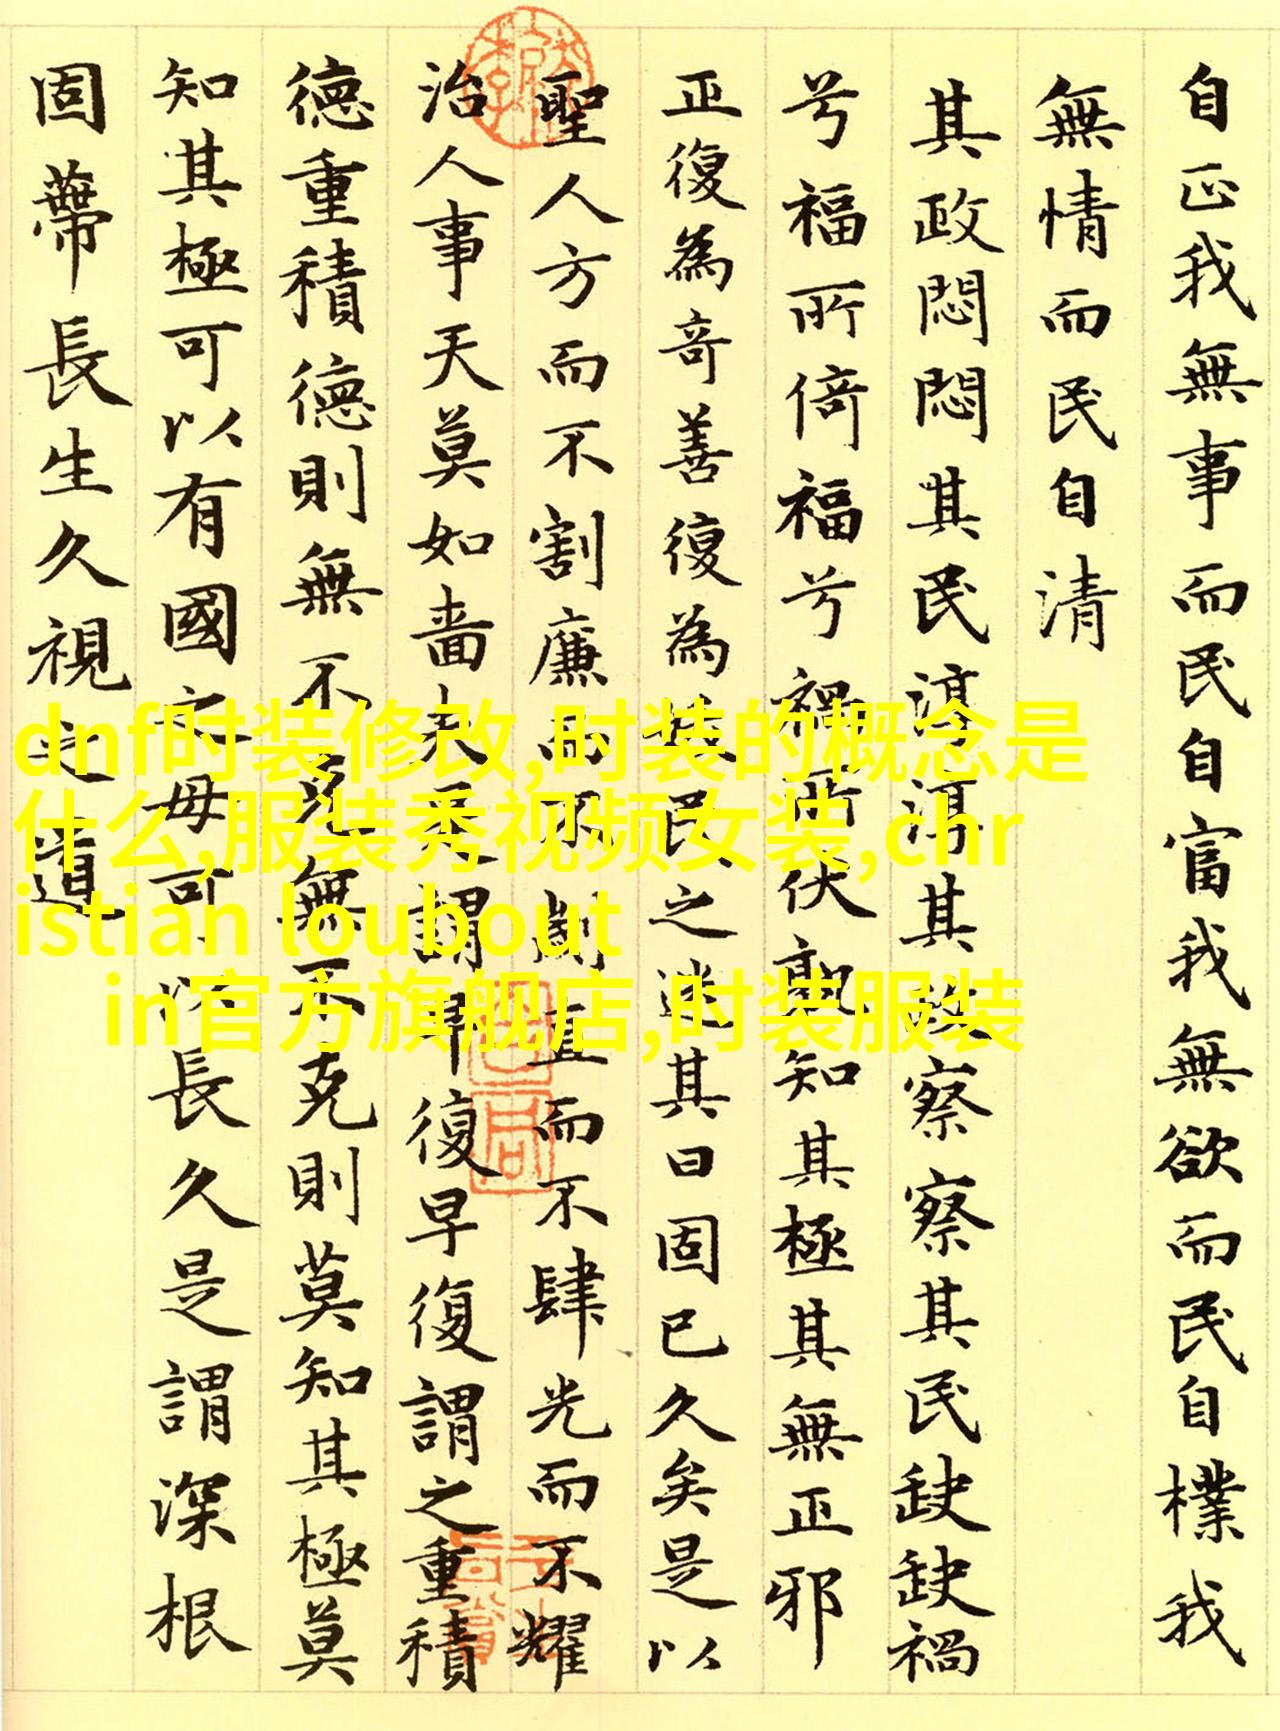 自正我無事而民自富我無欲而民自樸我
無情而民自清
其政悶悶其民淳淳其政察察其民缺缺禍
兮福所倚福兮禍所伏孰知其極其無正邪
正復為奇善復為民之迷其日固已久矣是以
聖人方而不割廉而不劌直而不肆光而不耀
治人事天莫如嗇夫謂早復早復謂之重積
德重積德則無不克無不克則莫知其極莫
知其極可以有國之母可以長久是謂深根
固蔕長生久視之道
dnf时装修改,时装的概念是
什么,服装秀视频女装,chr
istian loubout
in官方旗舰店,时装服装